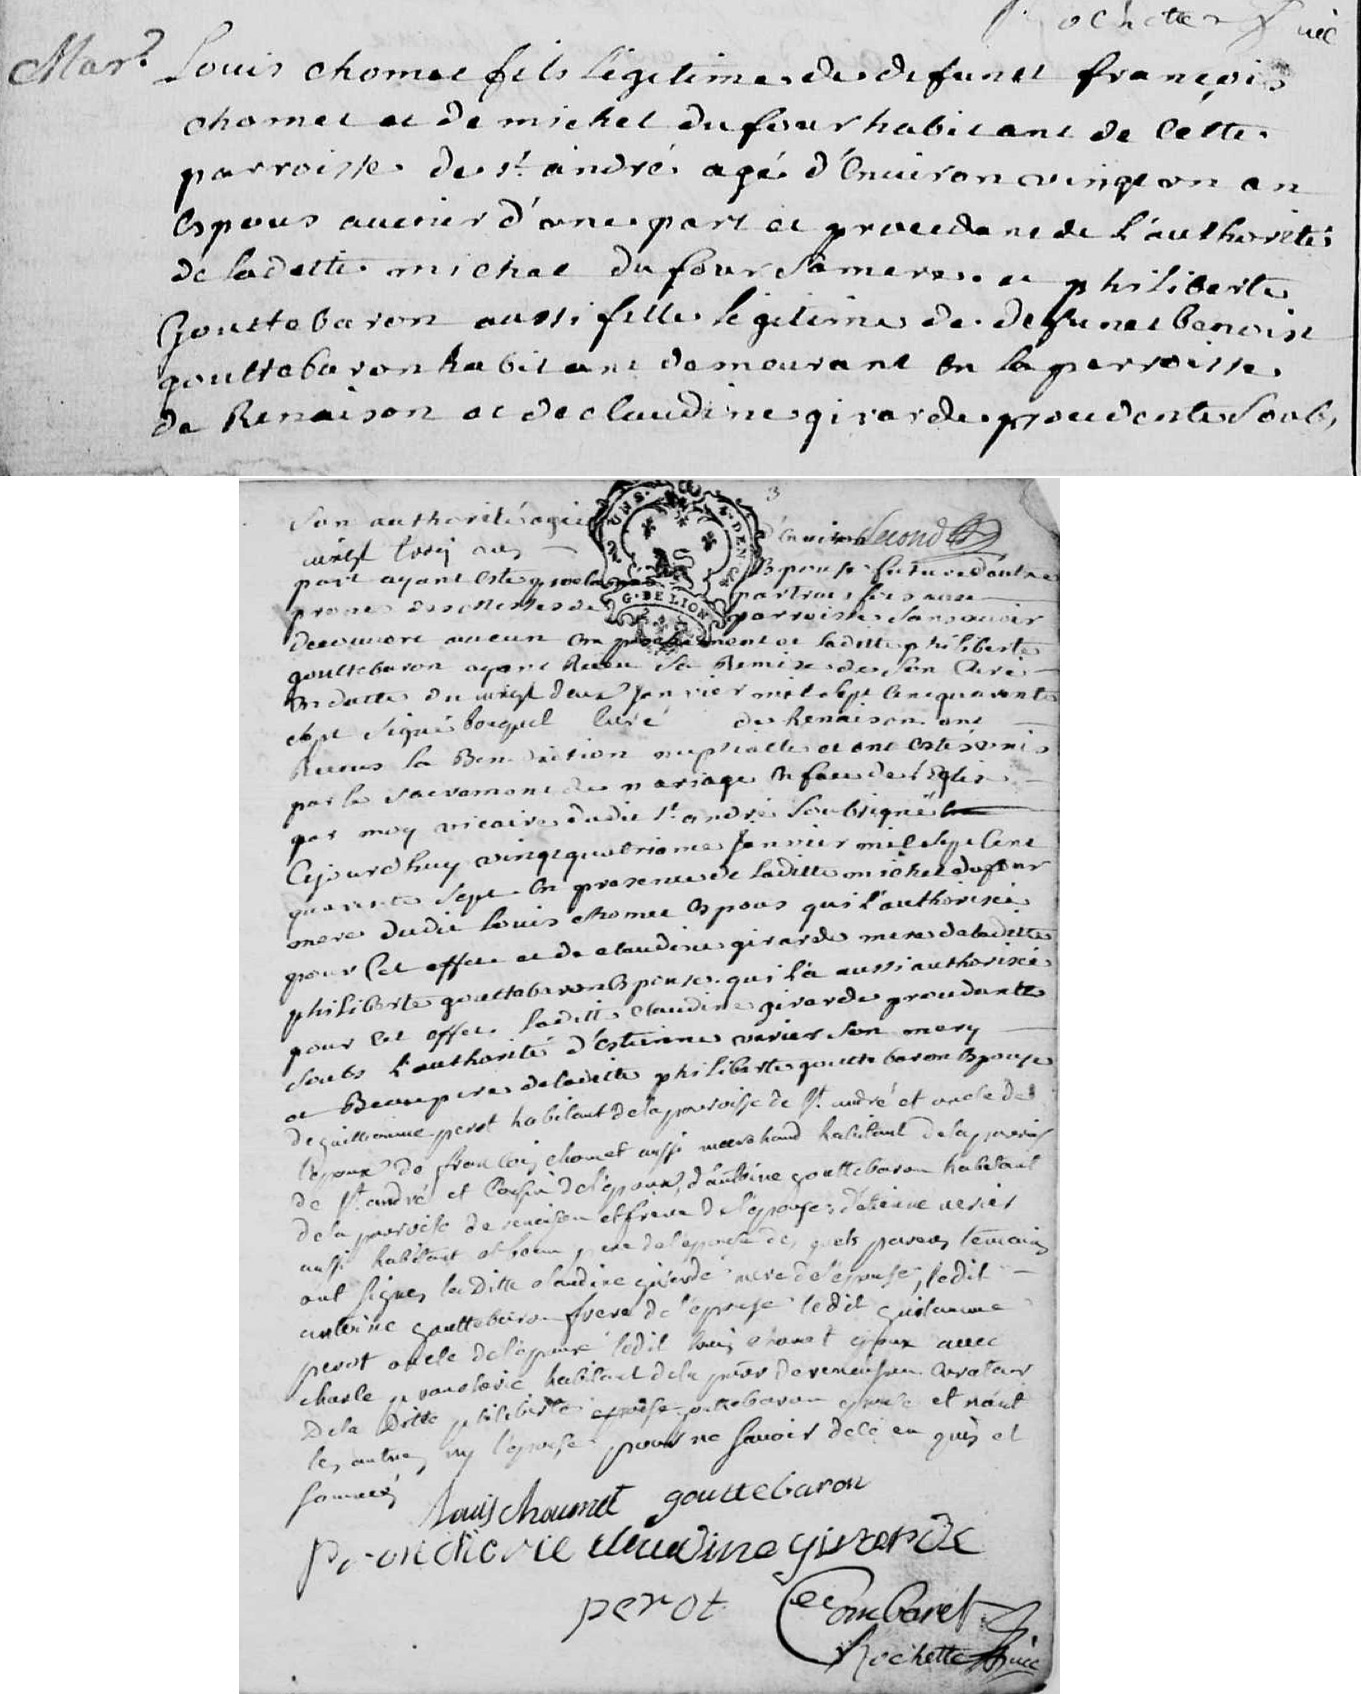 Rochette Vic
Mar.e Louis chomet fils légitime de defunct françois
chomet et de michel du four habitant de cette
parroisse de st. andré agé d'Environ vingt un an
Espous avenir d'une part et procedant de l'authorité
de ladette michel du four sa mere. et philiberte
Gouttebaron aussi fille legitime de defunct benoist
gouttebaron habitant demeurant En la parroisse
de Renaison et de claudine girarde procedente Soubs
3
Son authorité agée d'Environ Second
vingt trois ans
Espouse future d'autre
part ayant este proclamés par trois fois aux
prones des Messes de parroisse sans avoir
decouvert aucun Empechement et laditte philiberte
gouttebaron ayant Receu sa Remise de son Curé
En datte du vingt deux janvier mil sept Cent quarente
sept Signé bocquel Curé de Renaison ont
Receus la Benediction nuptialle et ont estés unis
par le sacrement de mariage En face de l'Eglise
par moy vicaire dudit st. andré Soubsigné
Cejourdhuy vingt quatrieme janvier mil sept Cent
quarente sept En presence de laditte michel dufour
mere dudit Louis chomet Espous qui l'authorisé
pour Cet effet et de claudine girarde mere de laditte
philiberte gouttebaron Epouse. qui l'a aussi authorisée
pour Cet effet laditte claudine girarde procedante
soubs l'authorité d'estienne verier son mary
et Beaupere de laditte philiberte gouttebaron Epouse
de guillaume perot habitant de la parroisse de St. andré et oncle de
l'epoux de françois chomet aussi marchand habitant de la parroisse
de St. andré et Cousin de l'epoux, d'antoine gouttebaron habitant
de la parroisse de renaison et frere de l'epouse, d'etienne verier
aussi habitant et beau pere de l'epouse des quels parens temoins
ont signés la Ditte claudine girarde mere de l'epouse, ledit
antoine gouttebaron frere de l'epouse ledit guilaume
perot oncle de l'epoux ledit louis chomet epoux avec
charle ponchorie habitant de la parr de renaison Curateur
De la Ditte philiberte epouse gouttebaron epouse et n'ont
les autres ny l'epouse pour ne savoir de ce enquis et
sommés
Louis choumet gouttebaron
claudine girerde
perot Combaret
Rochette Vic